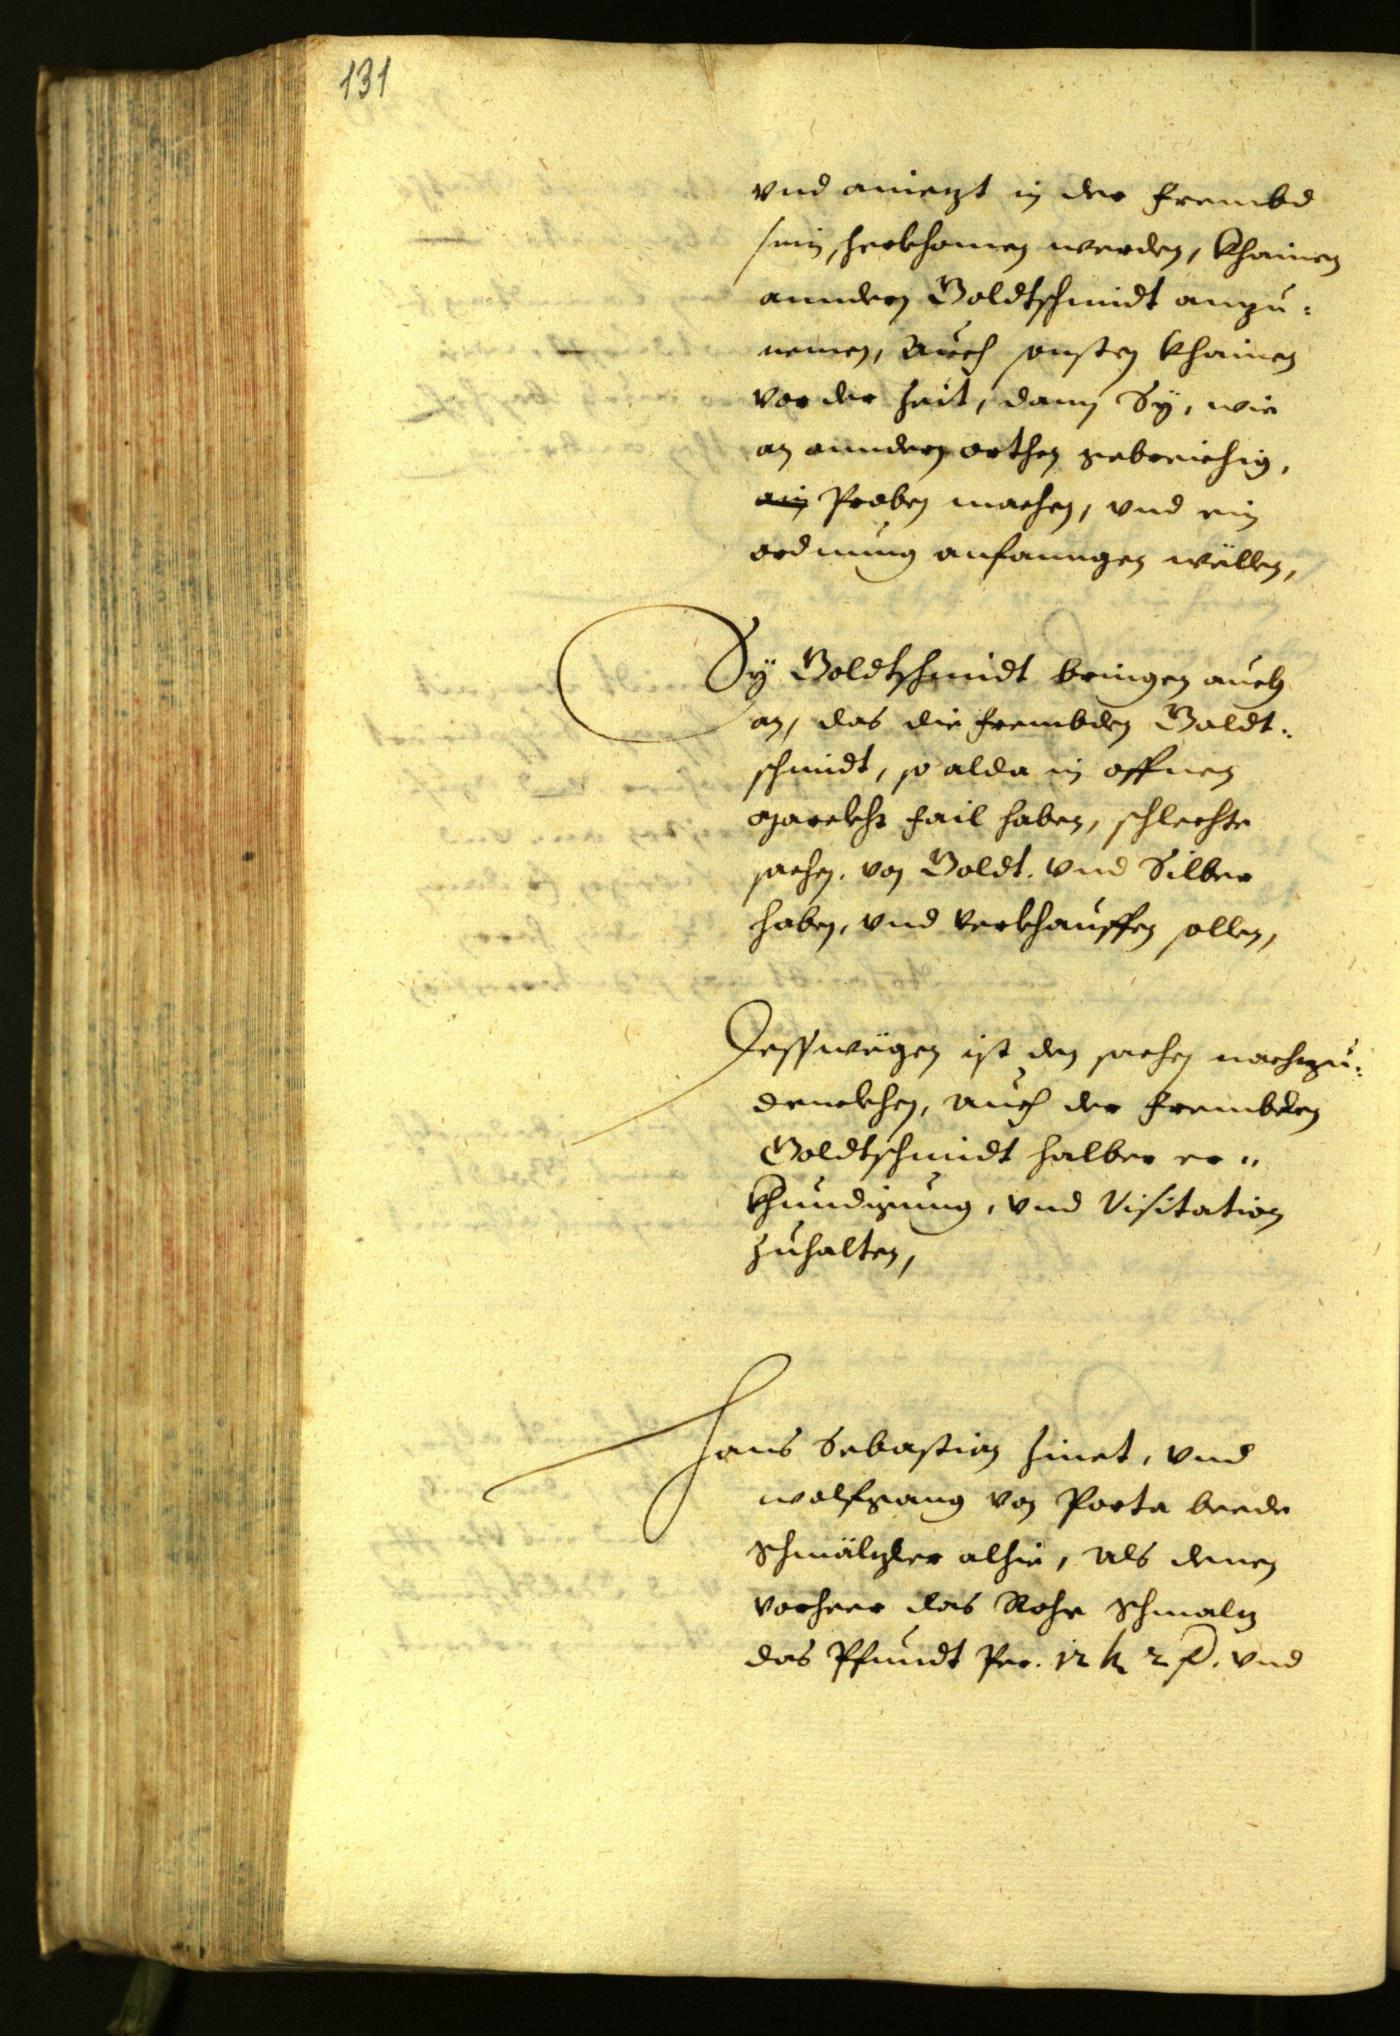 131
vnd anietzt in der frembd
sein, herkhomen werden, Khainen
anndern Goldtschmidt anzu-
nemen, Auch sonsten khainen
vor der Zeit, dann Sÿ, wie
an anndern orthen gebreichig,
ain Proben machen, vnd ein
ordnung anfanngen wëllen,
Sÿ Goldtschmidt bringen auch
an, das die frembden Goldt-
schmidt, so alda in offnen
Marckht fail haben, schlechte
sachen, von Goldt, vnd Silber
haben, vnd verkhauffen sollen,
Desswëgen ist den sachen nachzu-
denckhen, auch der frembden
Goldtschmidt halber er-
khundigung, vnd Visitation
zuhalten,
Hans Sebastian , vnd
wolfgang von Porta beede
Schmälzler alhie, Als denen
vorheer das Rohe Schmalz
das Pfundt Per. 12 k 2 d. vnd